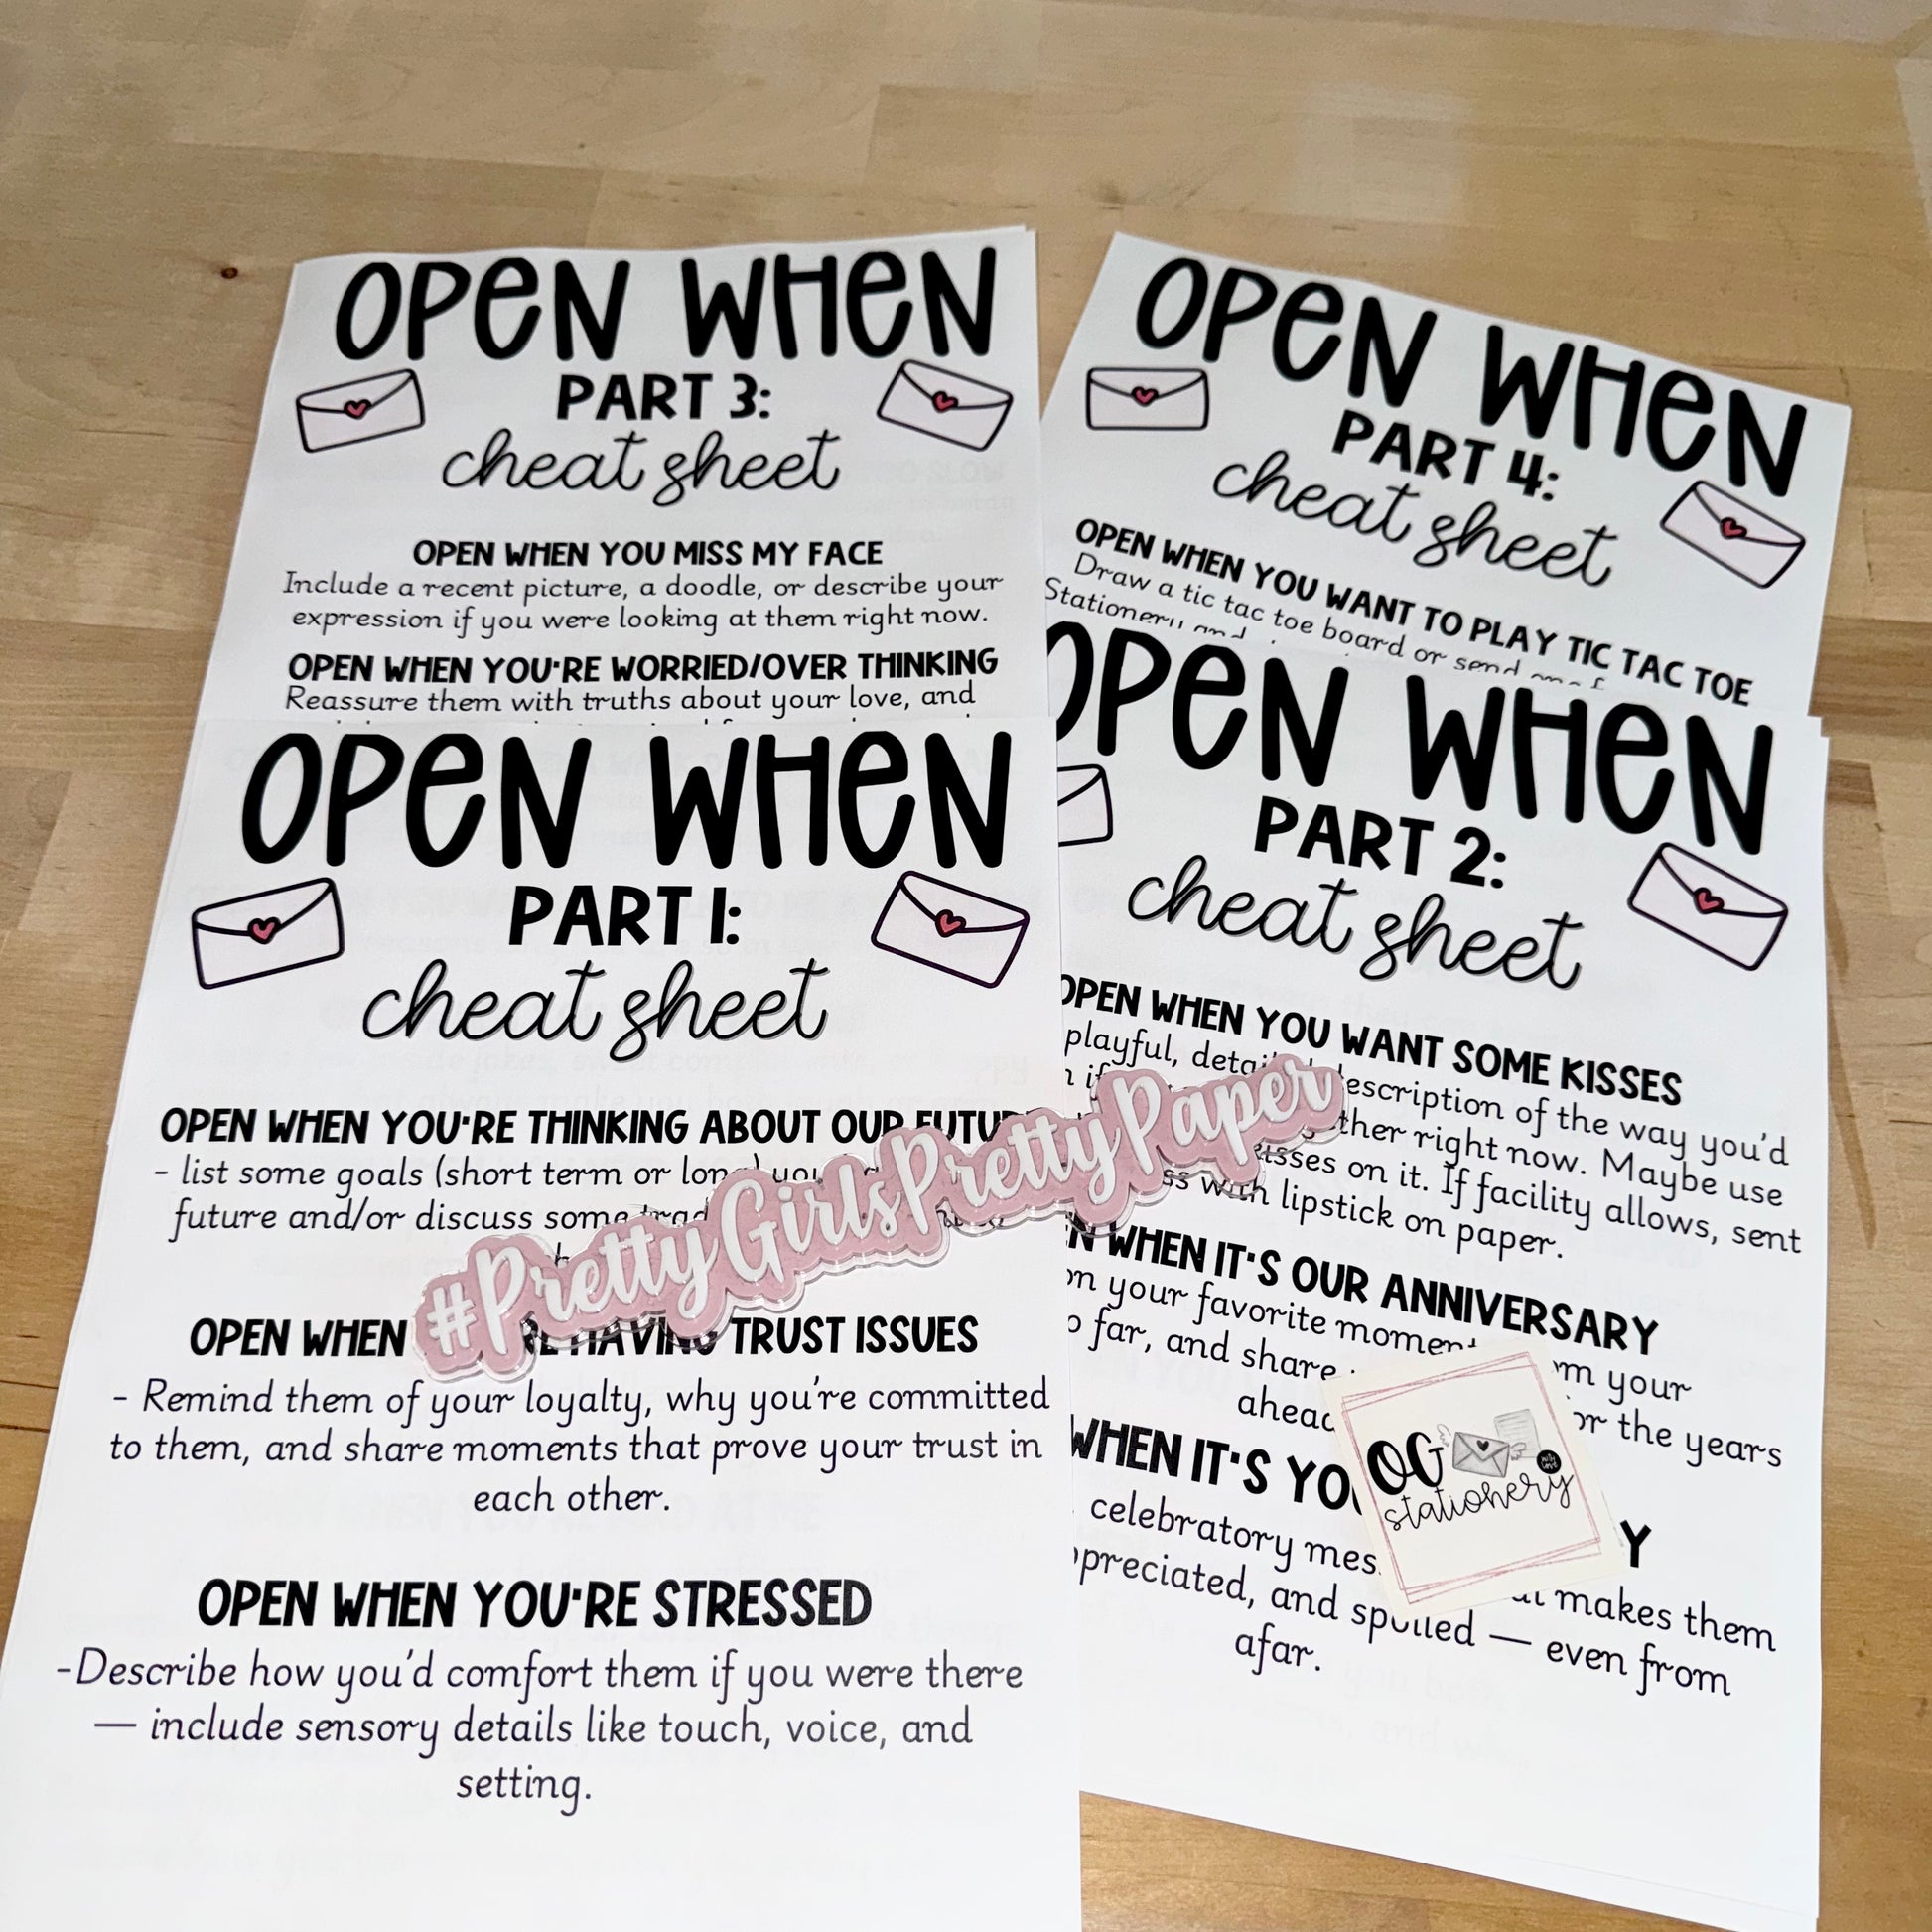 OPEN WHEN
PART 3:
cheat sheet
OPEN WHEN YOU MISS MY FACE
Include a recent picture, a doodle, or describe your
expression if you were looking at them right now.
OPEN WHEN YOU'RE WORRIED/OVER THINKING
Reassure them with truths about your love, and
OPEN WHEN
PART 4:
cheat sheet
OPEN WHEN YOU WANT TO PLAY TIC TAC TOE
Draw a tic tac toe board or send one
Stationery and
OPEN WHEN
PART 1:
cheat sheet
OPEN WHEN YOU'RE THINKING ABOUT OUR
- list some goals (short term or long)
future and/or discuss some
OPEN WHEN HAVING TRUST ISSUES
- Remind them of your loyalty, why you're committed
to them, and share moments that prove your trust in
each other.
OPEN WHEN YOU'RE STRESSED
-Describe how you'd comfort them if you were there
— include sensory details like touch, voice, and
setting.
OPEN WHEN
PART 2:
cheat sheet
OPEN WHEN YOU WANT SOME KISSES
playful, description of the way you'd
right now. Maybe use
kisses on it. If facility allows, sent
with lipstick on paper.
WHEN IT'S OUR ANNIVERSARY
on your favorite your
far, and share or the years
WHEN IT'S
celebratory makes them
and spoiled — even from
afar.
#PrettyGirlsPrettyPaper
OG
with love
stationery